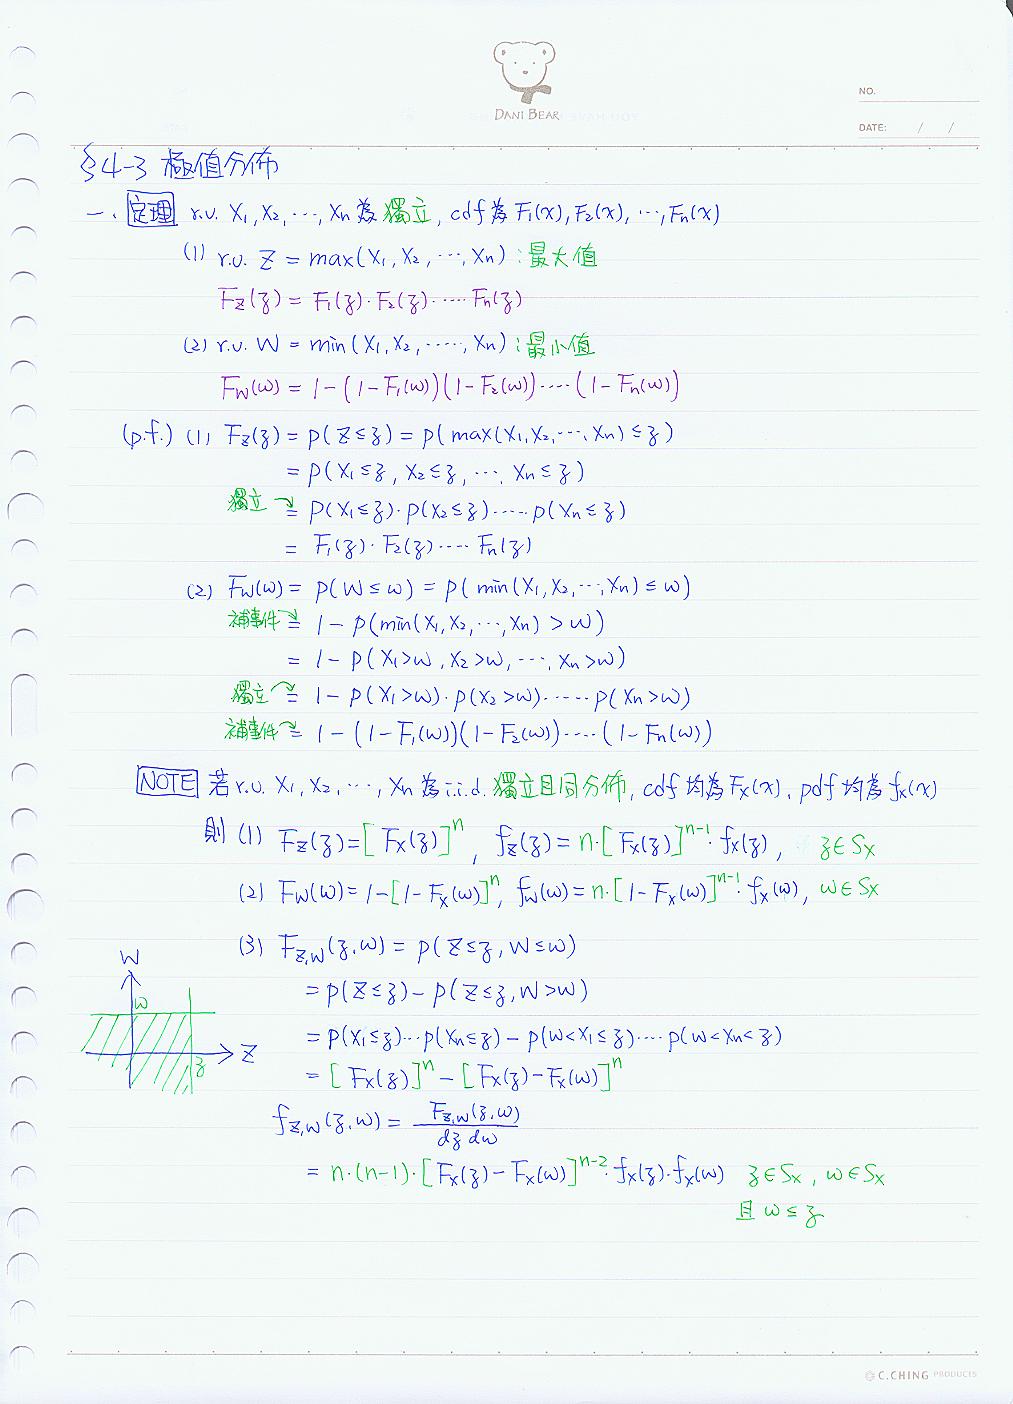 DANI BEAR
NO.
DATE: / /
§4-3 極值分佈
一、定理 r.v. X₁, X₂, ⋯, Xn 為獨立, cdf 為 F₁(x), F₂(x), ⋯, Fn(x)
(1) r.v. Z = max(X₁, X₂, ⋯, Xn) : 最大值
F_Z(z) = F₁(z)·F₂(z)·⋯· Fn(z)
(2) r.v. W = min(X₁, X₂, ⋯⋯, Xn) : 最小值
F_W(w) = 1-(1-F₁(w))(1-F₂(w))⋯⋯(1-Fn(w))
(p.f.) (1) F_Z(z) = P(Z≤z) = P(max(X₁,X₂,⋯,Xn)≤z)
= P(X₁≤z, X₂≤z, ⋯, Xn≤z)
獨立 = P(X₁≤z)·P(X₂≤z)·⋯⋯P(Xn≤z)
= F₁(z)·F₂(z)·⋯· Fn(z)
(2) F_W(w) = P(W≤w) = P(min(X₁,X₂,⋯,Xn)≤w)
補事件 = 1-P(min(X₁,X₂,⋯,Xn)>w)
= 1-P(X₁>w, X₂>w, ⋯, Xn>w)
獨立 = 1-P(X₁>w)·P(X₂>w)·⋯⋯P(Xn>w)
補事件 = 1-(1-F₁(w))(1-F₂(w))⋯⋯(1-Fn(w))
NOTE 若 r.v. X₁, X₂, ⋯, Xn 為 i.i.d. 獨立且同分佈, cdf 均為 F_X(x), pdf 均為 f_X(x)
則 (1) F_Z(z)=[F_X(z)]ⁿ, f_Z(z)=n·[F_X(z)]ⁿ⁻¹·f_X(z), z∈S_X
(2) F_W(w)=1-[1-F_X(w)]ⁿ, f_W(w)=n·[1-F_X(w)]ⁿ⁻¹·f_X(w), w∈S_X
(3) F_Z,W(z,w) = P(Z≤z, W≤w)
= P(Z≤z)-P(Z≤z, W>w)
= P(X₁≤z)⋯P(Xn≤z)-P(w<X₁≤z)⋯⋯P(w<Xn<z)
= [F_X(z)]ⁿ-[F_X(z)-F_X(w)]ⁿ
W
w
Z
z
f_Z,W(z,w) = F_Z,W(z,w) / dz dw
= n·(n-1)·[F_X(z)-F_X(w)]ⁿ⁻²·f_X(z)·f_X(w) z∈S_X, w∈S_X
且 w≤z
C.CHING PRODUCTS